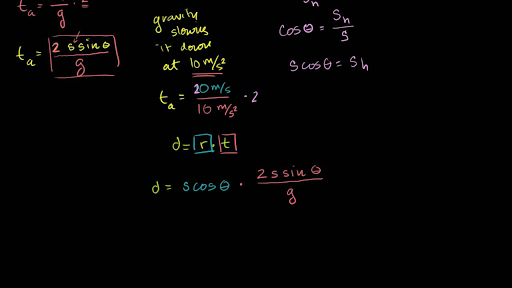 t_a = — · 2
g
t_a = 2 s sin θ / g
gravity
slows
it down
at 10 m/s²
t_a = 20 m/s / 10 m/s² · 2
d = r · t
d = s cos θ · 2 s sin θ / g
S_h
cos θ = S_h / S
s cos θ = S_h